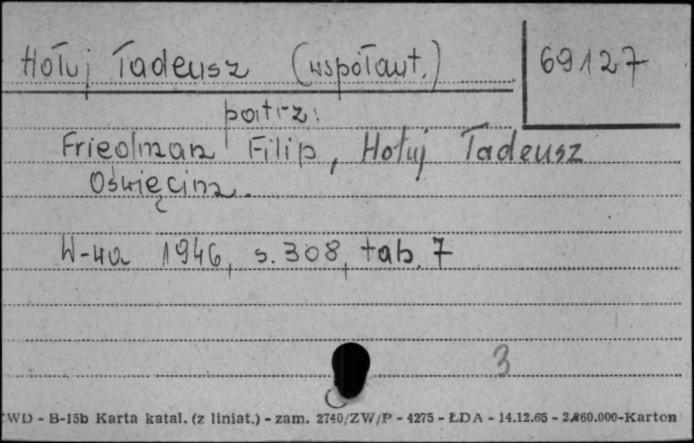 Hołuj Tadeusz (współaut.) 69127
patrz:
Friedman Filip, Hołuj Tadeusz
Oświęcim.
W-wa 1946, s. 308, tab. 7
3
CWD - B-15b Karta katal. (z liniat.) - zam. 2740/ZW/P - 4275 - ŁDA - 14.12.65 - 2.260.000-Karton